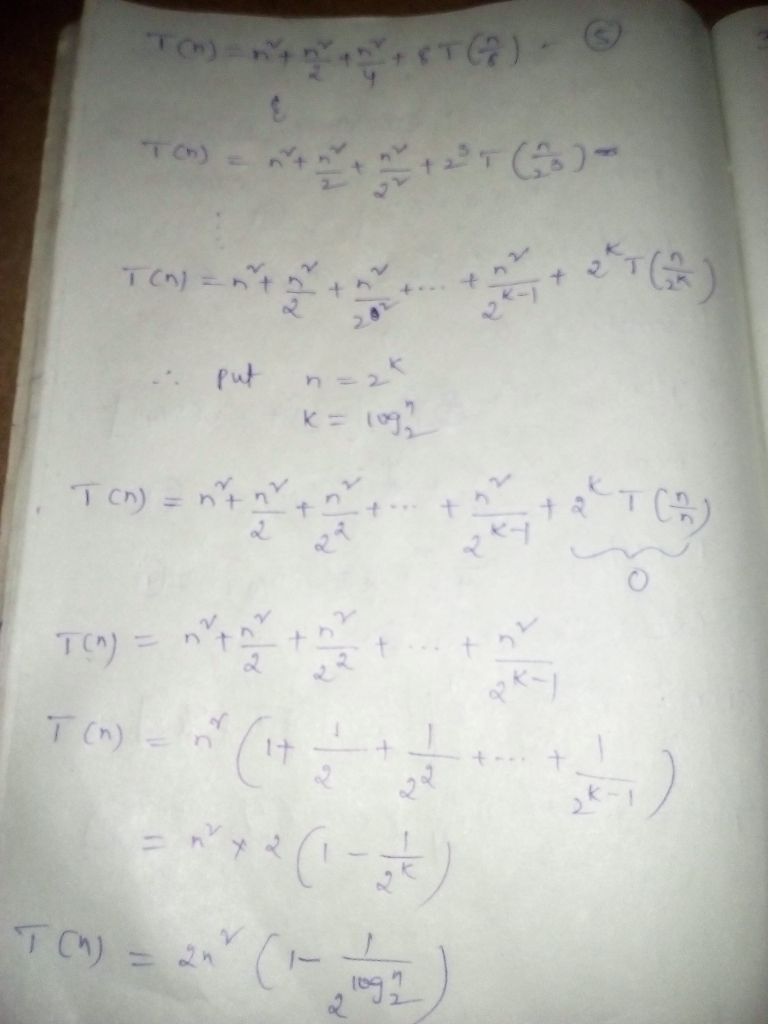 T(n) = n² + n²/2 + n²/4 + 8 T(n/8) - ⑤
T(n) = n² + n²/2 + n²/2² + 2³ T(n/2³) -
⋮
T(n) = n² + n²/2 + n²/2² + ... + n²/2^(k-1) + 2^k T(n/2^k)
∴ put n = 2^k
k = log₂ n
T(n) = n² + n²/2 + n²/2² + ... + n²/2^(k-1) + 2^k T(n/n)
0
T(n) = n² + n²/2 + n²/2² + ... + n²/2^(k-1)
T(n) = n² (1 + 1/2 + 1/2² + ... + 1/2^(k-1))
= n² × 2 (1 - 1/2^k)
T(n) = 2n² (1 - 1/2^(log₂ n))